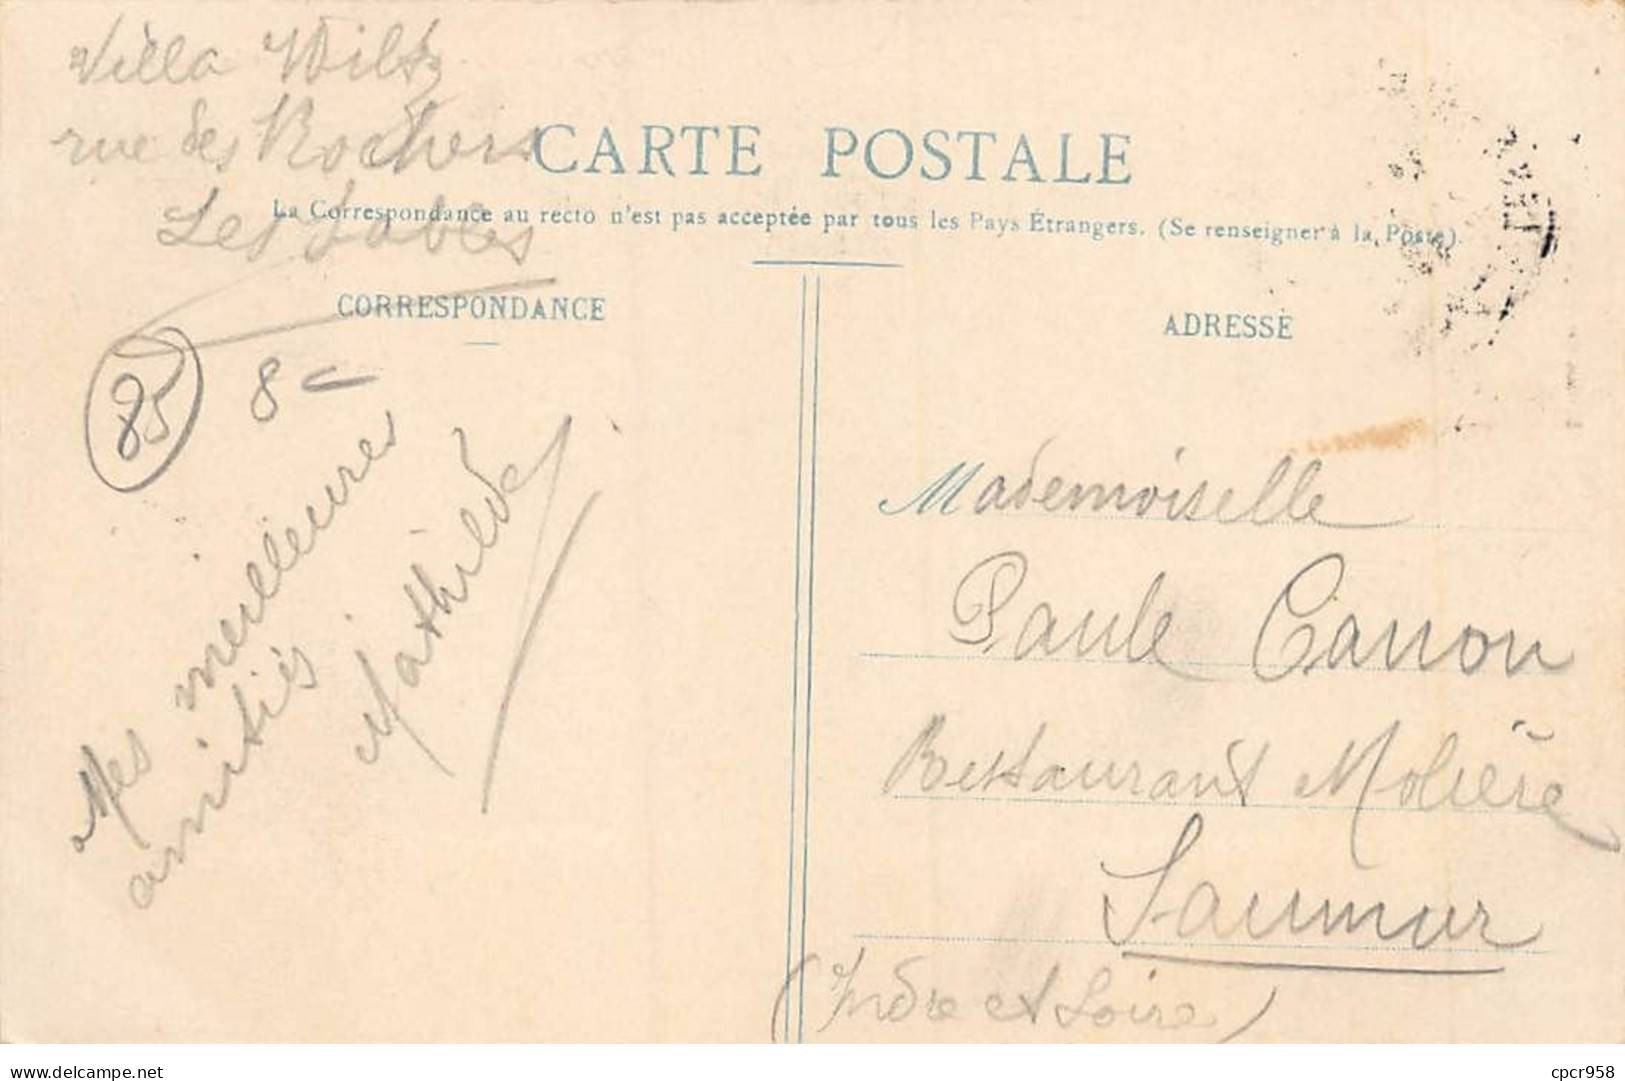 Villa Wiltz
rue des Rochers
Les Sables
CARTE POSTALE
La Correspondance au recto n'est pas acceptée par tous les Pays Étrangers. (Se renseigner à la Poste).
CORRESPONDANCE
ADRESSE
85
8
Mes meilleures
amitiés
Mathilde
Mademoiselle
Paule Canon
Restaurant Molière
Saumur
(Indre et Loire)
cpcr958